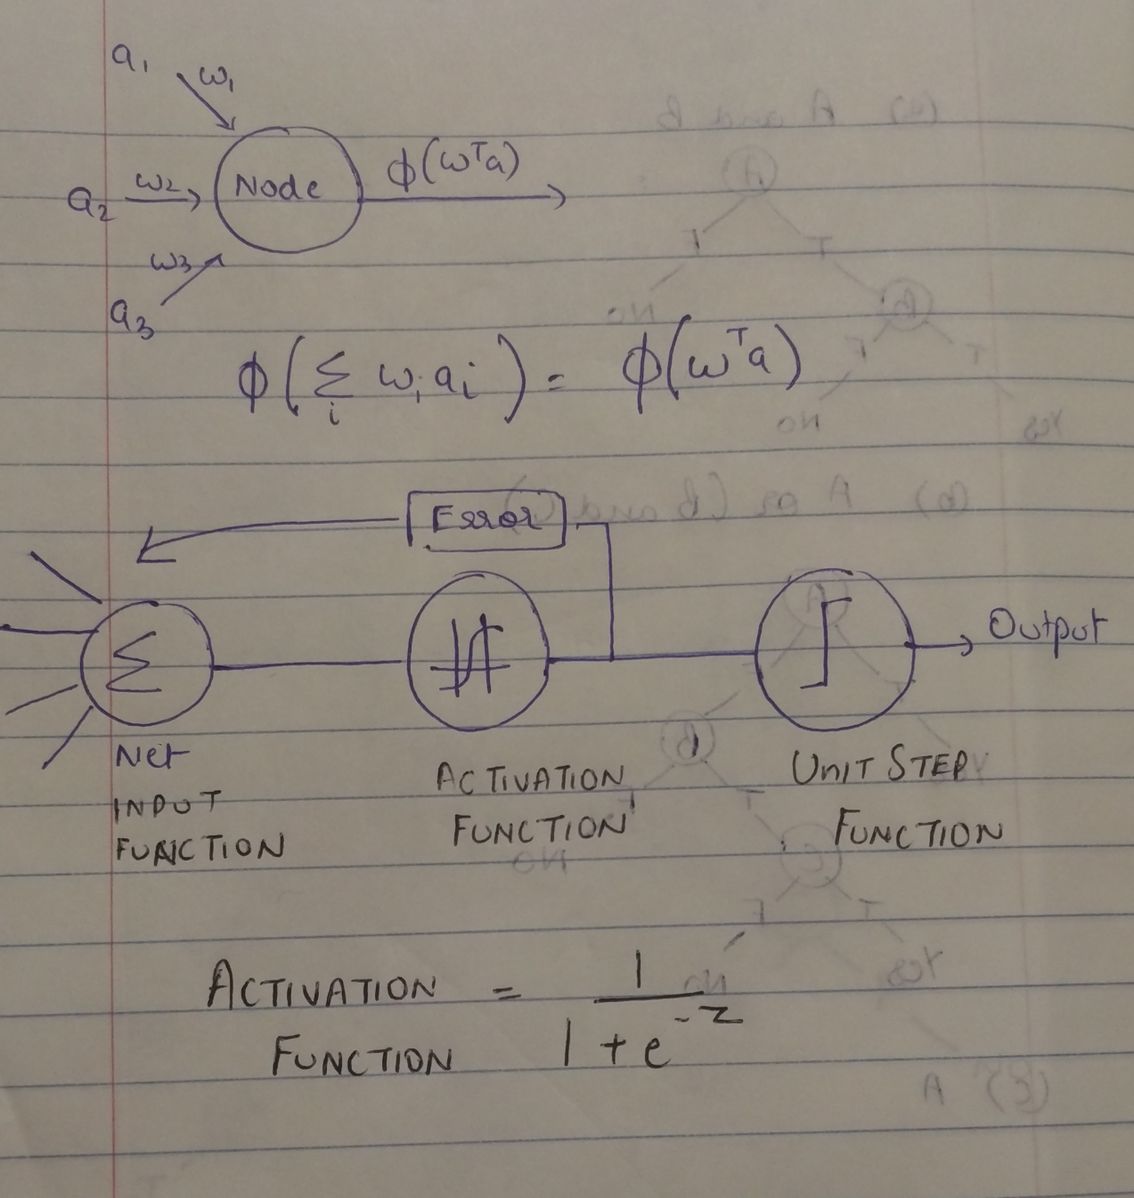 a₁ ω₁
a₂ ω₂ Node ϕ(ωᵀa)
ω₃
a₃
ϕ(Σᵢ ωᵢ aᵢ) = ϕ(ωᵀa)
Error
Σ
Output
Net
INPUT
FUNCTION
ACTIVATION
FUNCTION
UNIT STEP
FUNCTION
ACTIVATION = 1
FUNCTION 1 + e⁻ᶻ